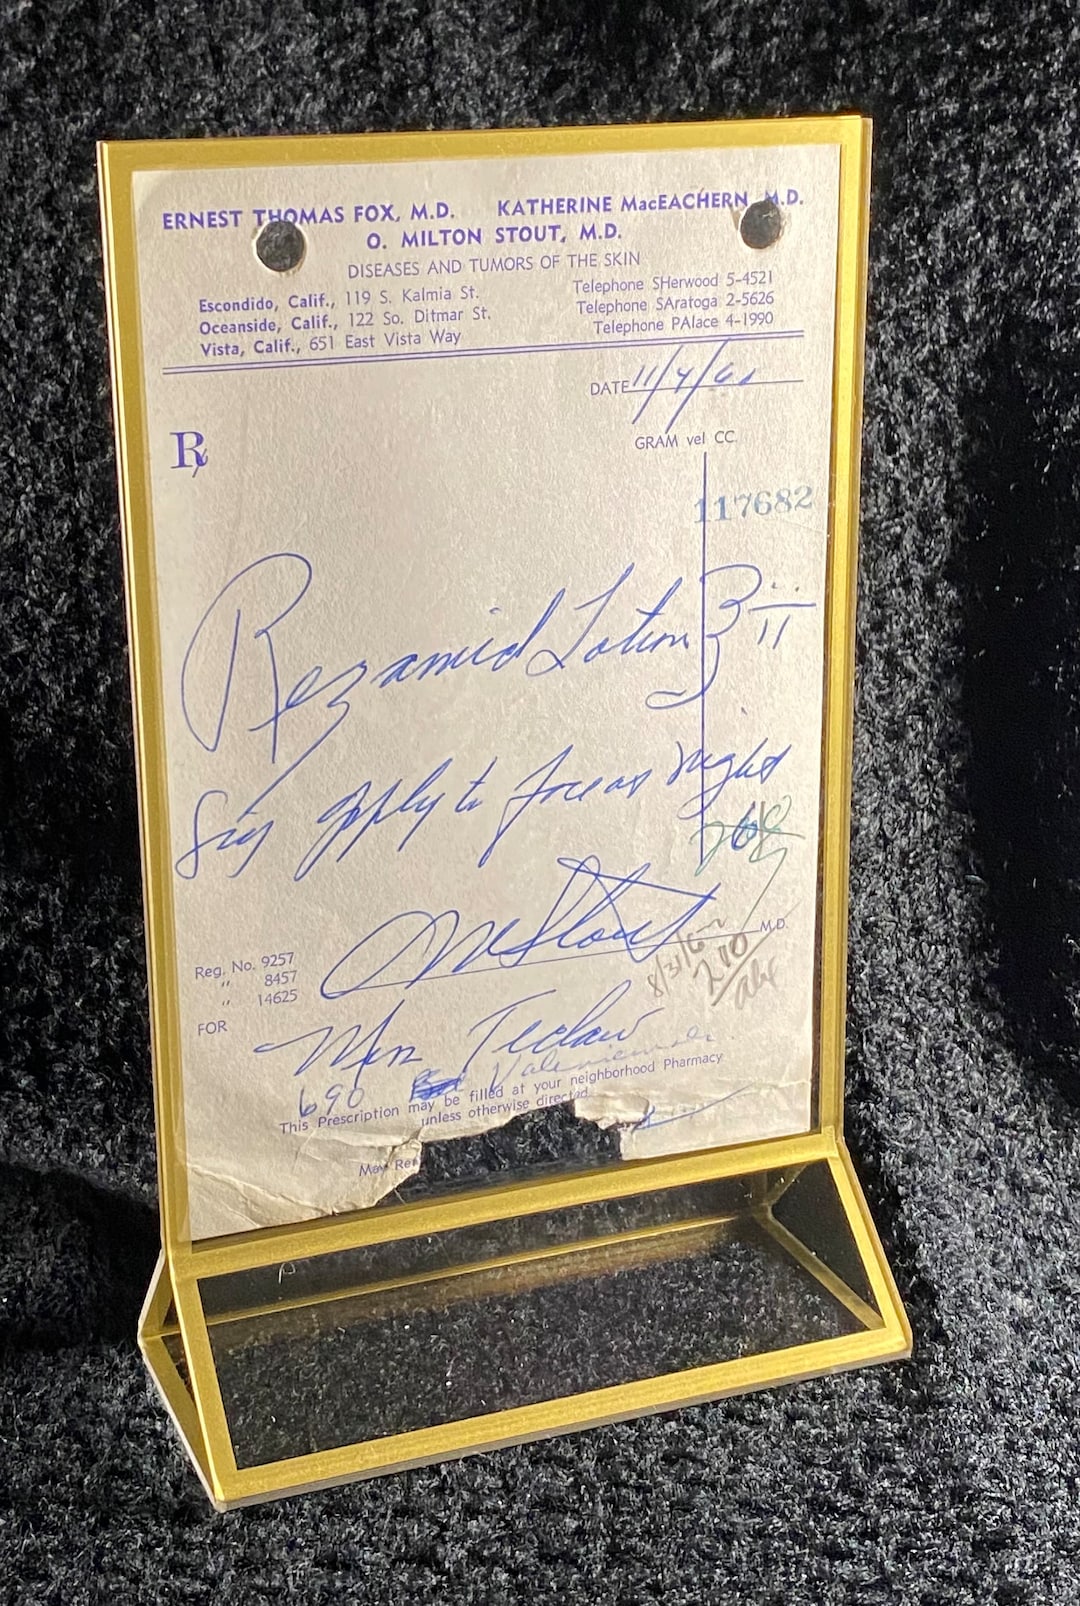 ERNEST THOMAS FOX, M.D. KATHERINE MacEACHERN, M.D.
O. MILTON STOUT, M.D.
DISEASES AND TUMORS OF THE SKIN
Escondido, Calif., 119 S. Kalmia St. Telephone SHerwood 5-4521
Oceanside, Calif., 122 So. Ditmar St. Telephone SAratoga 2-5626
Vista, Calif., 651 East Vista Way Telephone PAlace 4-1990
DATE 11/4/61
℞
GRAM vel CC.
117682
Rezamid Lotion ℥ii
Sig Apply to face at night
OM Stout M.D.
Reg. No. 9257
" 8457
" 14625
8/31/62
210
FOR
690
This Prescription may be filled at your neighborhood Pharmacy
unless otherwise directed.
May